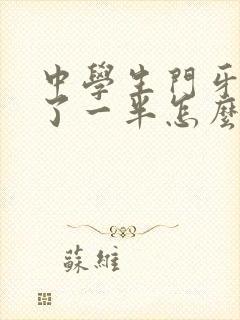 中學生門牙
了一半怎麼
蘇維